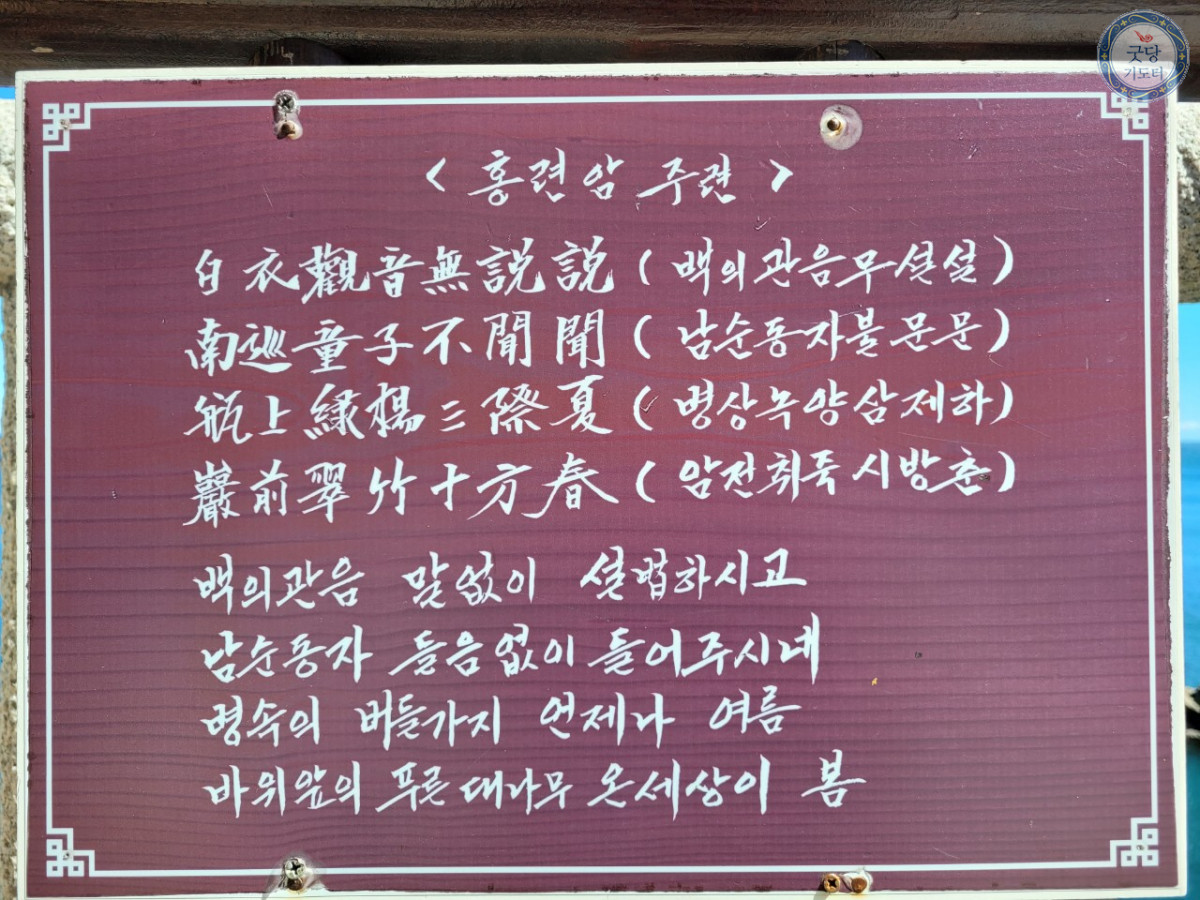 굿당
기도터
< 홍련암 주련 >
白衣觀音無説説 (백의관음무설설)
南巡童子不聞聞 (남순동자불문문)
甁上緑楊三際夏 (병상녹양삼제하)
巖前翠竹十方春 (암전취죽시방춘)
백의관음 말없이 설법하시고
남순동자 들음없이 들어주시네
병속의 버들가지 언제나 여름
바위앞의 푸른 대나무 온세상이 봄